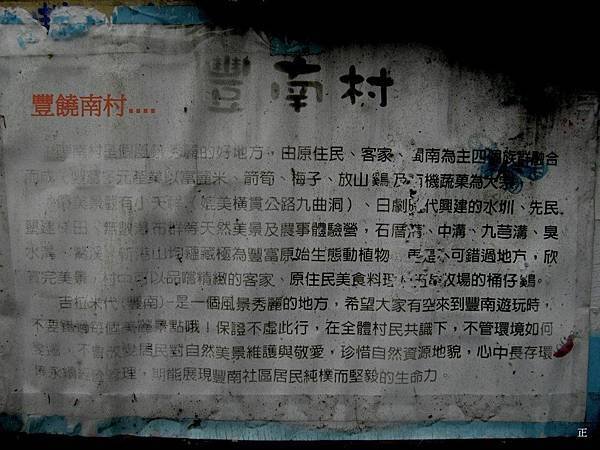 豐南村
豐饒南村....
南村是個風景秀麗的好地方，由原住民、客家、閩南為主四個族群融合
而成，元產業以富麗米、箭筍、梅子、放山雞及有機蔬菜為大宗
美景觀有小天祥（媲美橫貫公路九曲洞）、日劇時代興建的水圳、先民
墾建梯田、無數瀑布群等天然美景及農事體驗營，石厝溝、中溝、九芎溝、臭
水溝、鱉溪、新港山均蘊藏極為豐富原始生態動植物，再是不可錯過地方，欣
賞完美景，村中可以品嚐精緻的客家、原住民美食料理、牧場的桶仔雞。
吉拉米代(豐南)-是一個風景秀麗的地方，希望大家有空來到豐南遊玩時，
不要錯過每個美麗景點哦！保證不虛此行，在全體村民共識下，不管環境如何
變遷，不會改變居民對自然美景維護與敬愛，珍惜自然資源地貌，心中長存環
保永續經營管理，期能展現豐南社區居民純樸而堅毅的生命力。
正